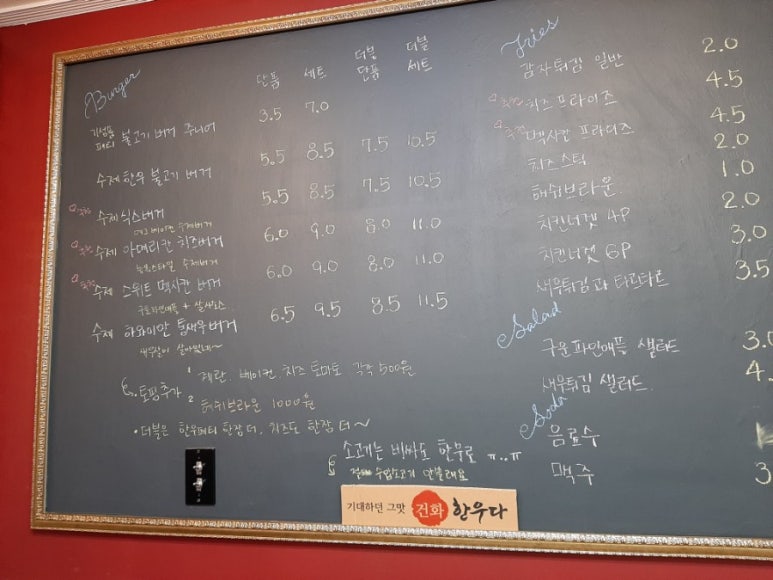 Burger
단품 세트 더블 단품 더블 세트
기성품 패티 불고기 버거 주니어 3.5 7.0
수제 한우 불고기 버거 5.5 8.5 7.5 10.5
수제 식스버거 5.5 8.5 7.5 10.5
수제버거
수제 아메리칸 치즈버거 6.0 9.0 8.0 11.0
뉴욕스타일 수제버거
수제 스위트 멕시칸 버거 6.0 9.0 8.0 11.0
구운파인애플 + 살사소스
수제 하와이안 통새우버거 6.5 9.5 8.5 11.5
새우살이 살아있네~
토핑추가 1 계란, 베이컨, 치즈 토마토 각각 500원
2 해쉬브라운 1000원
• 더블은 한우패티 한장 더, 치즈도 한장 더~
소고기는 비싸도 한우로 ㅠ..ㅠ
수입소고기 안쓸래요
기대하던 그맛 건화 한우다
Fries
감자튀김 일반 2.0
치즈 프라이즈 4.5
멕시칸 프라이즈 4.5
치즈스틱 2.0
해쉬브라운 1.0
치킨너겟 4P 2.0
치킨너겟 6P 3.0
새우튀김과 타르타르 3.5
Salad
구운파인애플 샐러드 3.0
새우튀김 샐러드 4.
Soda
음료수
맥주 3